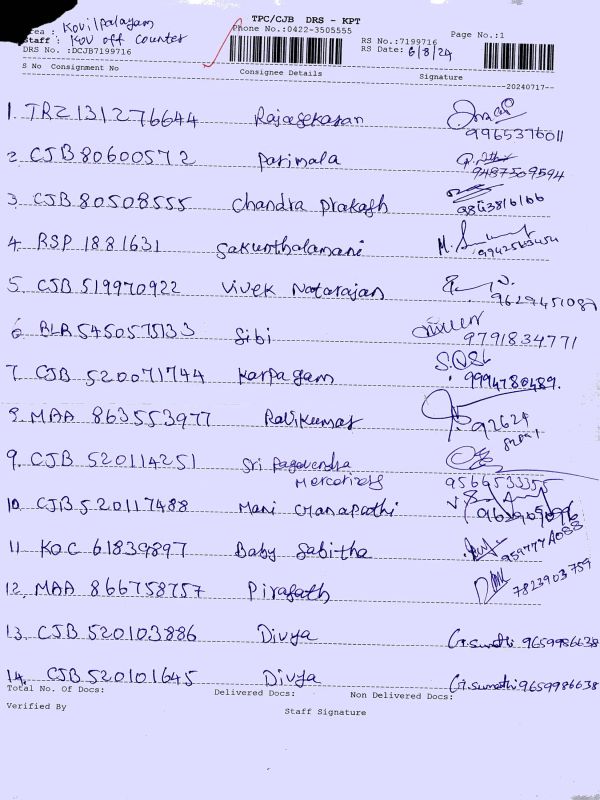 TPC/CJB DRS - KPT
Area : Kovilpalayam Phone No.:0422-3505555 Page No.:1
Staff : Kov off Counter RS No.:7199716
DRS No. :DCJB7199716 RS Date: 6/8/24
S No Consignment No Consignee Details Signature
--20240717--
1. TRZ131276644 Rajasekaran 9965376011
2 CJB80600572 Parimala 9487509594
3. CJB80508555 Chandra Prakash
4. RSP 1881631 Sakunthalamani M.
5. CJB 519970922 Vivek Natarajan 9629451087
6 BLR5450575133 Sibi 9791834771
7. CJB 520071744 Karpagam 9994780489.
8. MAA 863553977 Ravikumar 92624
9. CJB 520114251 Sri Ragavendra
Mercerizers 9566533355
10. CJB520117488 Mani Ganapathi
11 KOC 61839897 Baby Sabitha
12. MAA 866758757 Pirasath 7823903759
13. CJB 520103886 Divya G.sumathi 9659986638
14. CJB 520101645 Divya G.sumathi 9659986638
Total No. Of Docs: Delivered Docs: Non Delivered Docs:
Verified By Staff Signature